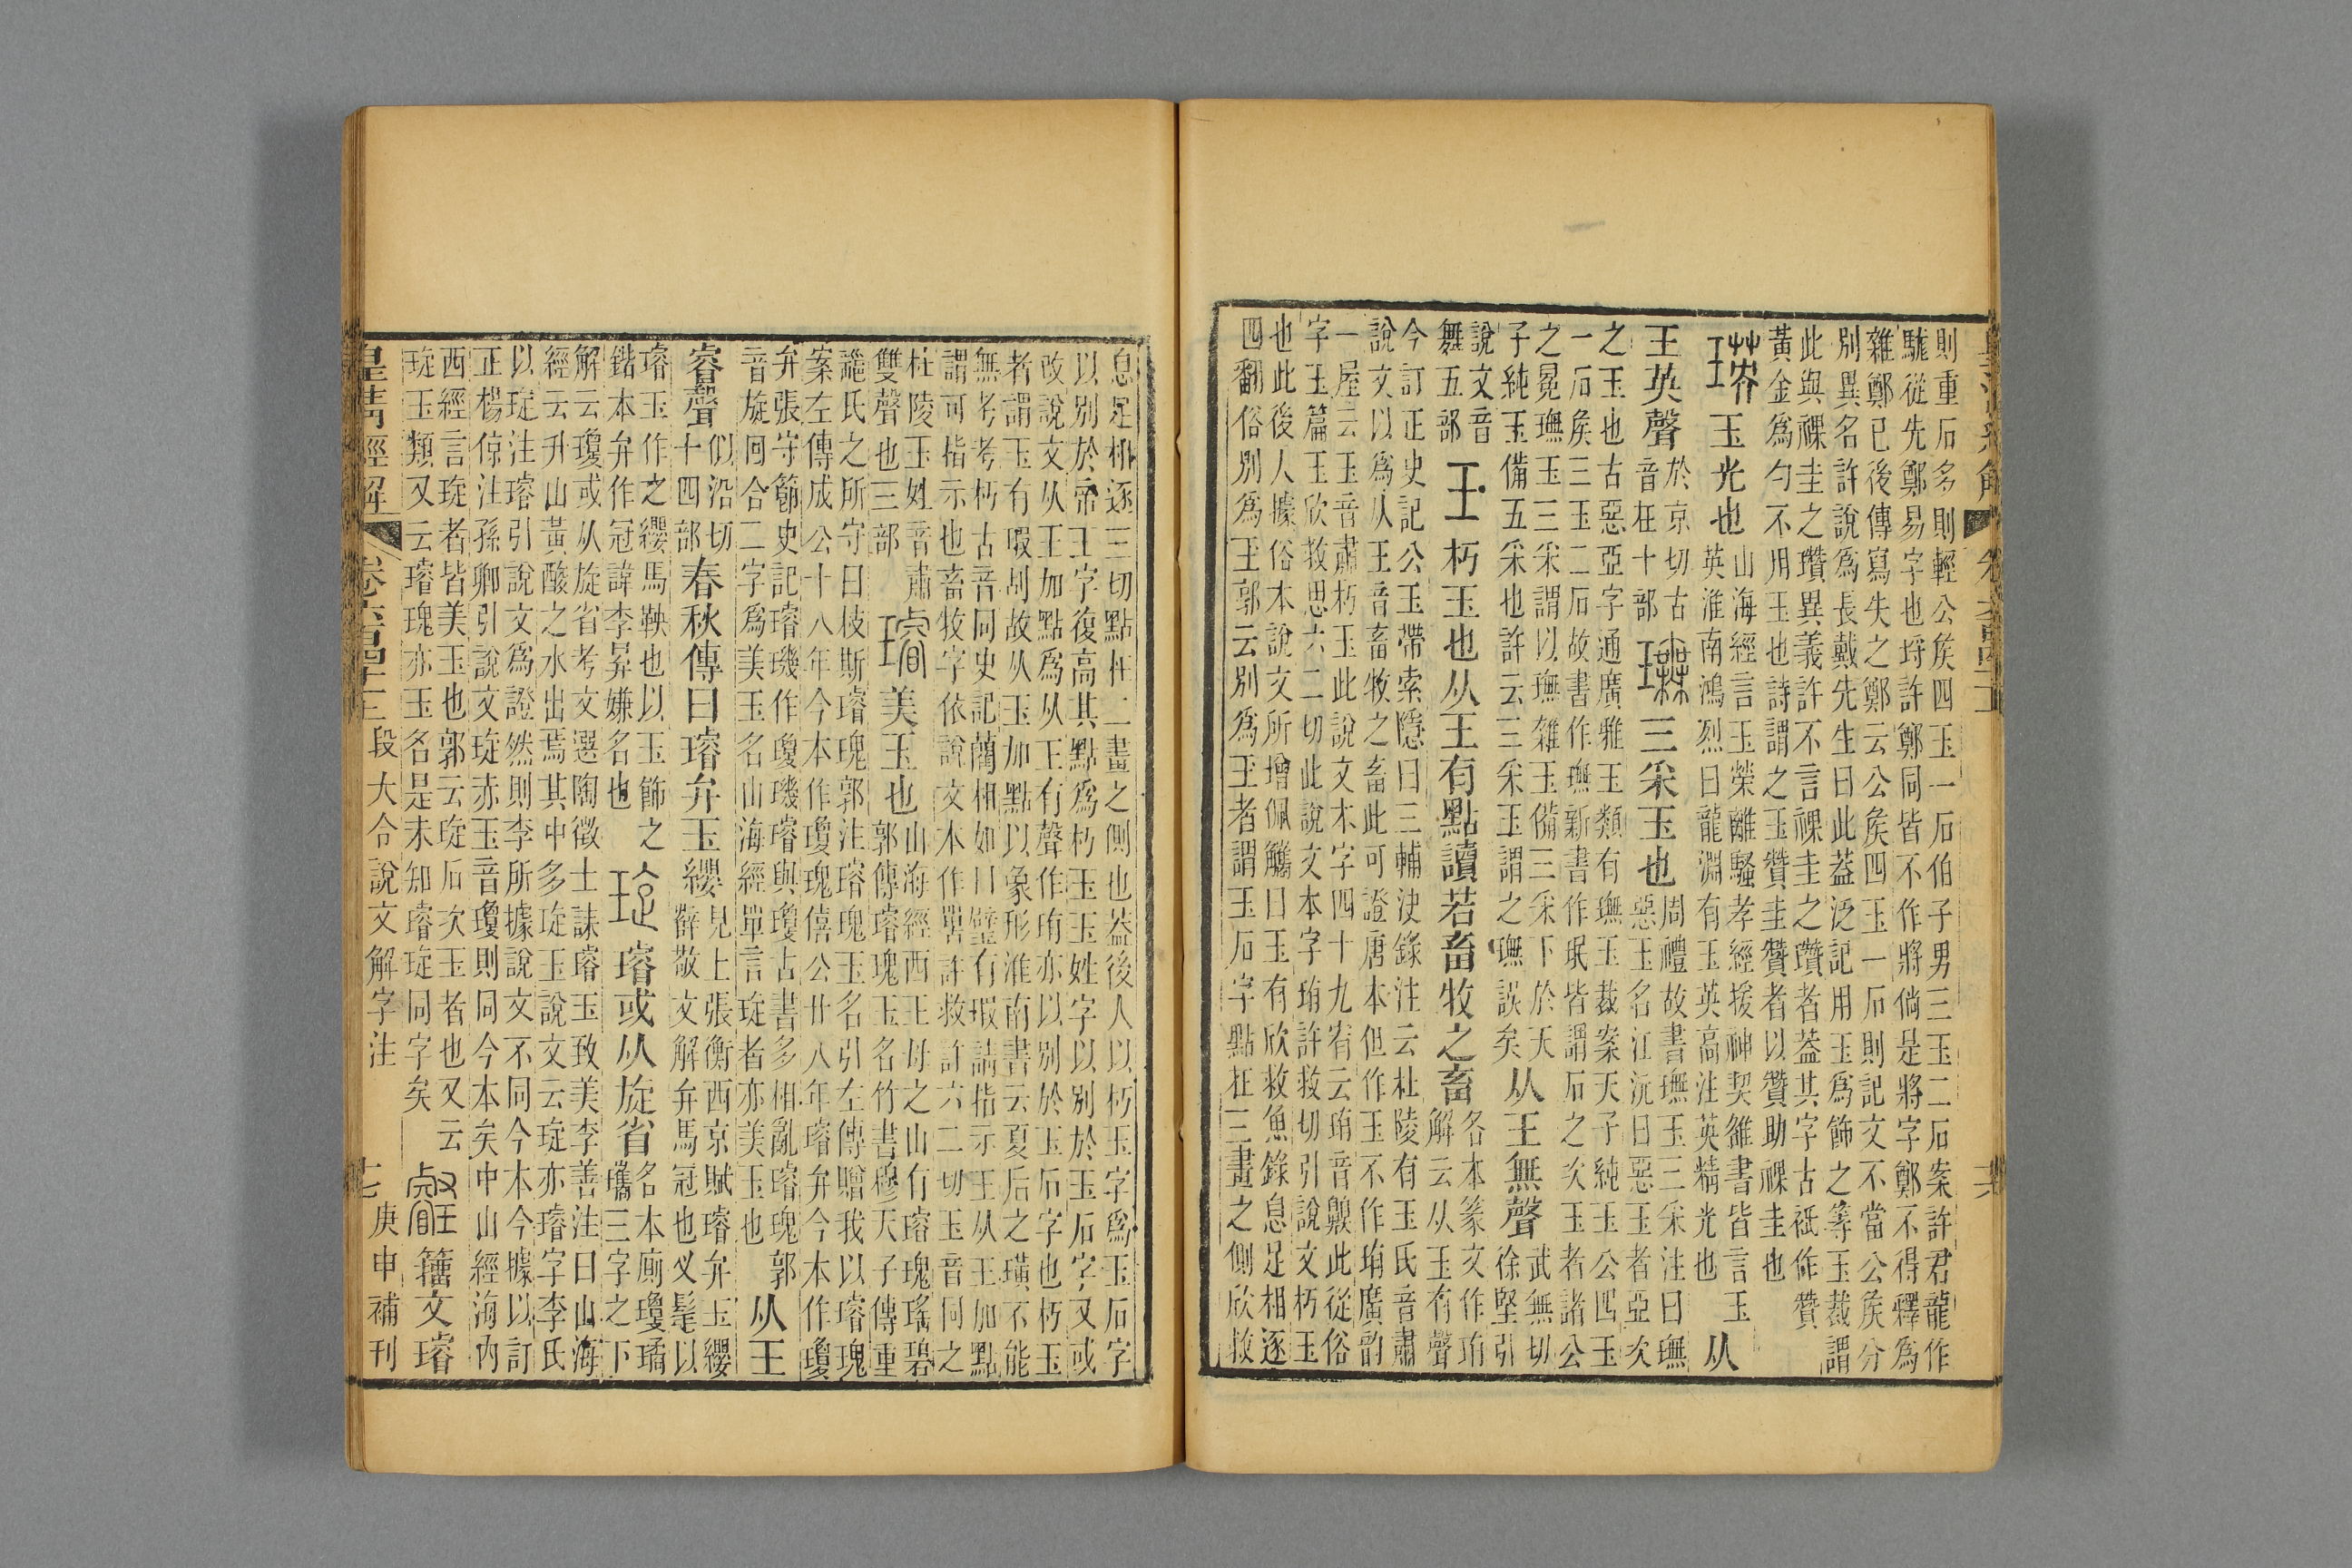 皇淸經解
卷六百四十一
六
則重石多則輕公矦四玉一石伯子男三玉二石案許君龍作
駹從先鄭易字也埒許鄭同皆不作將倘是將字鄭不得釋爲
雜鄭已後傳寫失之鄭云公矦四玉一石則記文不當公矦分
別異名許說爲長戴先生曰此葢泛記用玉爲飾之等玉裁謂
此與祼圭之瓚異義許不言祼圭之瓚者葢其字古衹作贊
黃金爲勺不用玉也詩謂之玉贊圭贊者以贊助祼圭也
瑛玉光也
山海經言玉榮離騷孝經援神契雒書皆言玉
英淮南鴻烈曰龍淵有玉英高注英精光也
从
王英聲
於京切古
音在十部
璑三采玉也
周禮故書璑玉三采注曰璑
惡玉名江沅曰惡玉者亞次
之玉也古惡亞字通廣雅玉類有璑玉裁案天子純玉公四玉
一石矦三玉二石故書作璑新書作珉皆謂石之次玉者諸公
之冕璑玉三采謂以璑雜玉備三采下於天
子純玉備五采也許云三采玉謂之璑誤矣
从王無聲
武無切
徐堅引
說文音
舞五部
玊朽玉也从王有點讀若畜牧之畜
各本篆文作珛
解云从玉有聲
今訂正史記公玉帶索隱曰三輔決錄注云杜陵有玉氏音肅
說文以爲从王音畜牧之畜此可證唐本但作玉不作珛廣韵
一屋云玉音肅朽玉此說文本字四十九宥云珛音齅此從俗
字玉篇玉欣救思六二切此說文本字珛許救切引說文朽玉
也此後人據俗本說文所增佩觿曰玉有欣救魚錄息足相逐
四翻俗別爲王郭云別爲玊者謂玉石字點在三畫之側欣救
息足相逐三切點在二畫之側也葢後人以朽玉字爲玉石字
以別於帝王字復高其點爲朽玉玉姓字以別於玉石字又或
改說文从王加點爲从王有聲作珛亦以別於玉石字也朽玉
者謂玉有瑕刮故从玉加點以象形淮南書云夏后之璜不能
無考考朽古音同史記藺相如曰璧有瑕請指示王从王加點
謂可指示也畜牧字依說文本作嘼許救許六二切玉音同之
杜陵玉姓音肅
雙聲也三部
璿美玉也
山海經西王母之山有璿瑰瑤碧
郭傳璿瑰玉名竹書穆天子傳重
氏之所守曰枝斯璿瑰郭注璿瑰玉名引左傳贈我以璿瑰
案左傳成公十八年今本作瓊瑰僖公廿八年璿弁今本作瓊
弁張守節史記璿璣作瓊璣璿與瓊古書多相亂璿瑰郭
音旋回合二字爲美玉名山海經單言琁者亦美玉也
从王
睿聲
似沿切
十四部
春秋傳曰璿弁玉纓
見上張衡西京賦璿弁玉纓
薛敬文解弁馬冠也叉髦以
璿玉作之纓馬鞅也以玉飾之
鍇本弁作冠諱李昪嫌名也
琁璿或从旋省
名本廁瓊璚
瓗三字之下
解云瓊或从旋省考文選陶徵士誄璿玉致美李善注曰山海
經云升山黃酸之水出焉其中多琁玉說文云琁亦璿字李氏
以琁注璿引說文爲證然則李所據說文不同今本今據以訂
正楊倞注孫卿引說文琁赤玉音瓊則同今本矣中山經海內
西經言琁者皆美玉也郭云琁石次玉者也又云
琁玉類又云璿瑰亦玉名是未知璿琁同字矣
籒文璿
皇淸經解
卷六百四十一
段大令說文解字注
七
庚申補刊